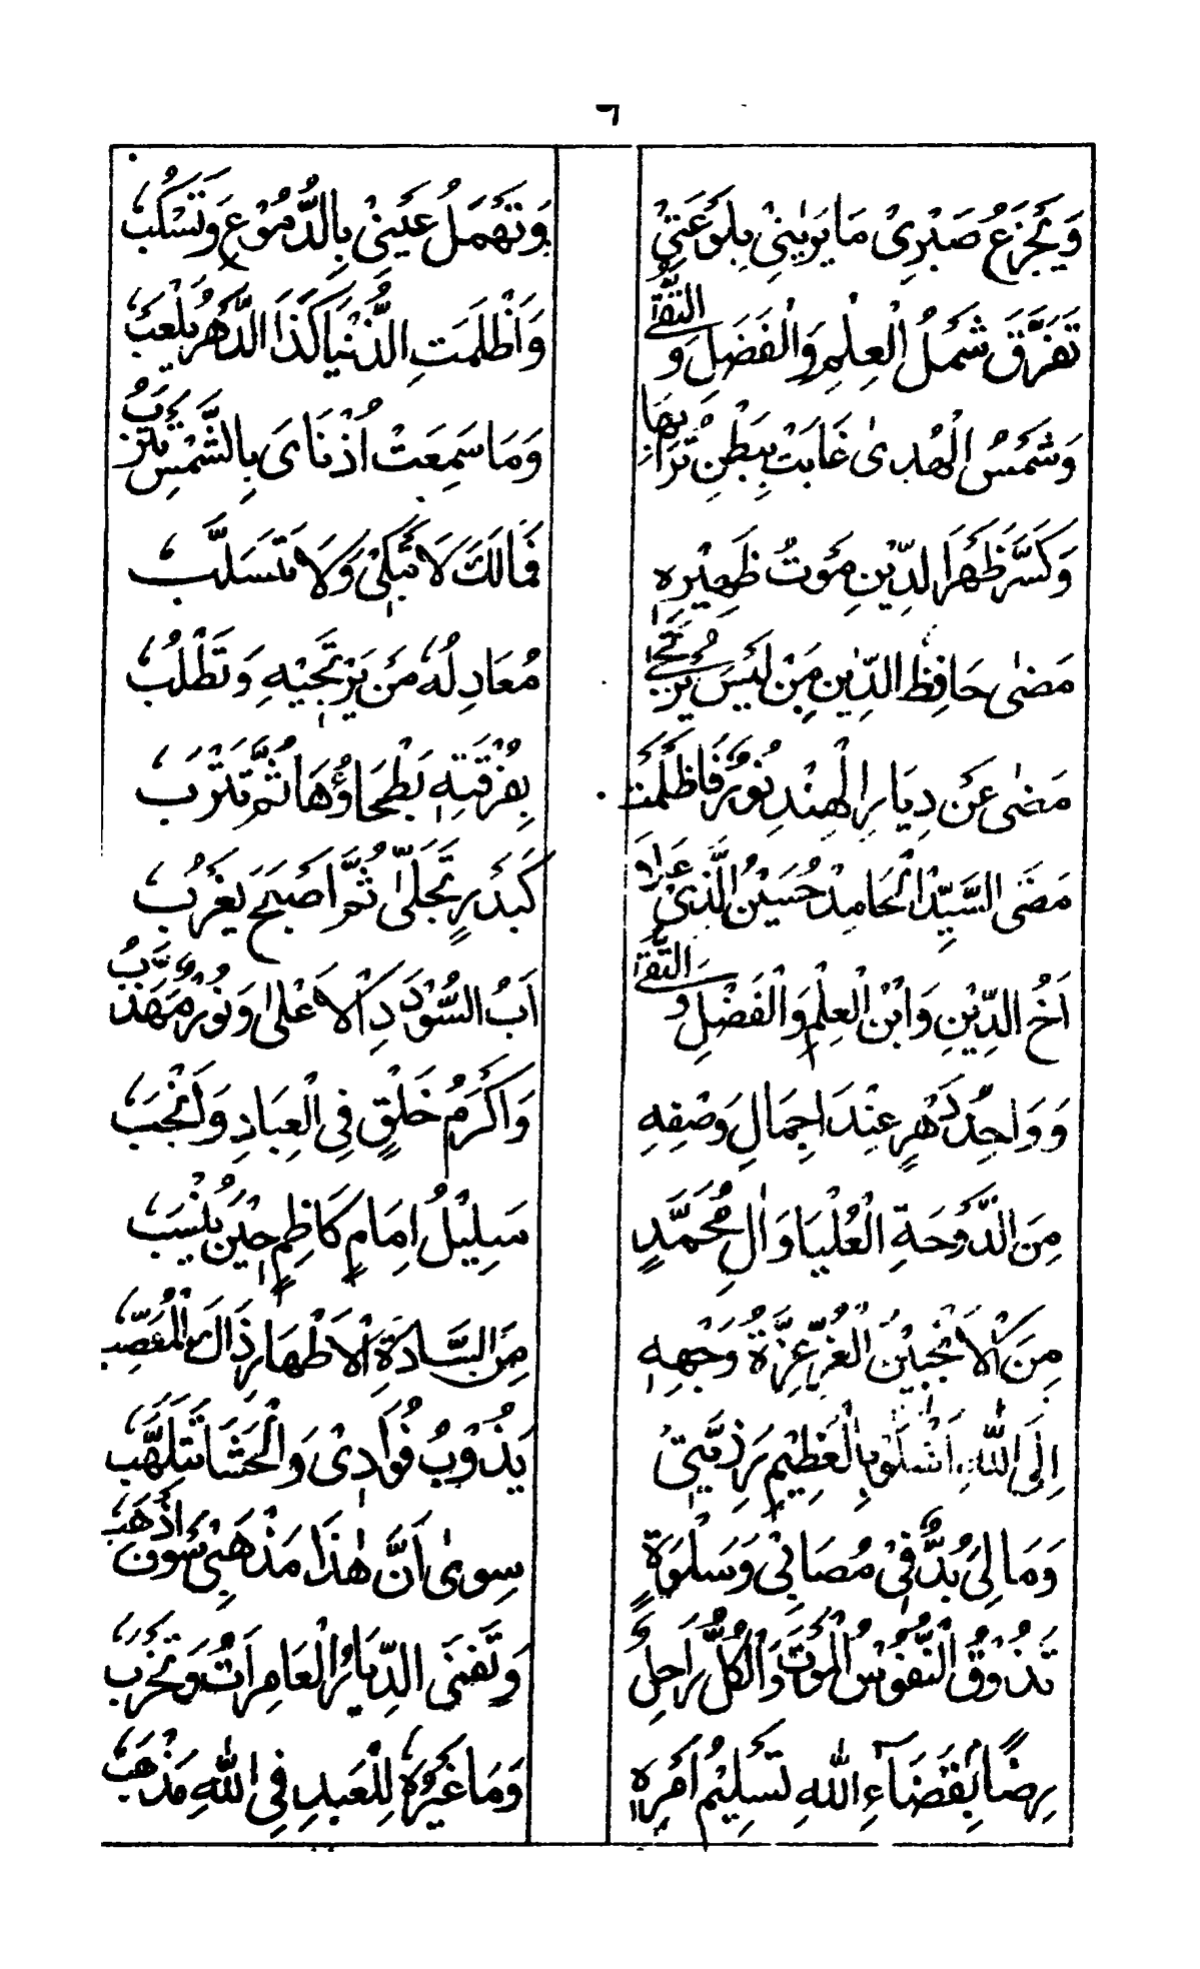 ٦
وَيَجْزَعُ صَبْرِىْ مَا يَرَيٰنِىْ بِلَوْعَتِىْ وَتَهْمَلُ عَيْنِىْ بِالدُّمُوْعِ وَتَسْكُبُ
تَفَرَّقَ شَمْلُ الْعِلْمِ وَالْفَضْلِ وَالتُّقٰى وَاَظْلَمَتِ الدُّنْيَا كَذَا الدَّهْرُ يَلْعَبُ
وَشَمْسُ الْهُدىٰ غَابَتْ بِبَطْنِ تُرَابِهَا وَمَا سَمِعَتْ اُذْنَاىَ بِالشَّمْسِ تُتْرَبُ
وَكَسَّرَ ظَهْرَ الدِّيْنِ مَوْتُ ظَهِيْرِهٖ فَمَالَكَ لَا تَبْكِىْ وَلَا تَتَسَلَّبُ
مَضٰى حَافِظُ الدِّيْنِ مَنْ لَيْسَ يُرْتَجٰى مُعَادِلُهٗ مَنْ يَرْتَجِيْهِ وَتَطْلُبُ
مَضٰى عَنْ دِيَارِ الْهِنْدِ نُوْرٌ فَاَظْلَمَتْ بِفُرْقَتِهٖ بَطْحَاؤُهَا ثُمَّ تَتْرَبُ
مَضَى السَّيِّدُ الْحَامِدْ حُسَيْنُ الَّذِىْ عَلَا كَبَدْرٍ تَجَلّٰى ثُمَّ اَصْبَحَ يَغْرُبُ
اَخُ الدِّيْنِ وَابْنُ الْعِلْمِ وَالْفَضْلِ وَالتُّقٰى اَبُ السُّوْدَدِ الْاَعْلٰى وَنُوْرٌ مُهَذَّبُ
وَوَاحِدُ دَهْرٍ عِنْدَ اِجْمَالِ وَصْفِهٖ وَاَكْرَمُ خَلْقٍ فِى الْعِبَادِ وَاَنْجَبُ
مِنَ الدَّوْحَةِ الْعُلْيَا وَاٰلِ مُحَمَّدٍ سَلِيْلُ اِمَامٍ كَاظِمٍ حِيْنَ يُنْسَبُ
مِنَ الْاَنْجَبِيْنَ الْغُرِّ عِزَّةُ وَجْهِهٖ مِنَ السَّادَةِ الْاَطْهَارِ ذَاكَ الْمُعَصَّبُ
اِلَى اللّٰهِ اَشْكُوْ بِالْعَظِيْمِ رَزِيَّتِىْ يَذُوْبُ فُوَادِىْ وَالْحَشَا تَتَلَهَّبُ
وَمَا لِىَ بُدٌّ فِىْ مُصَابِىْ وَسَلْوَةٍ سِوىٰ اَنَّ هٰذَا مَذْهَبِىْ سَوْفَ اَذْهَبُ
تَذُوْقُ النُّفُوْسُ الْمَوْتَ وَالْكُلُّ رَاحِلٌ وَتَفْنَى الدِّيَارُ الْعَامِرَاتُ وَتَخْرَبُ
رِضًا بِقَضَآءِ اللّٰهِ تَسْلِيْمُ اَمْرِهٖ وَمَا غَيْرُهٗ لِلْعَبْدِ فِى اللّٰهِ مَذْهَبُ